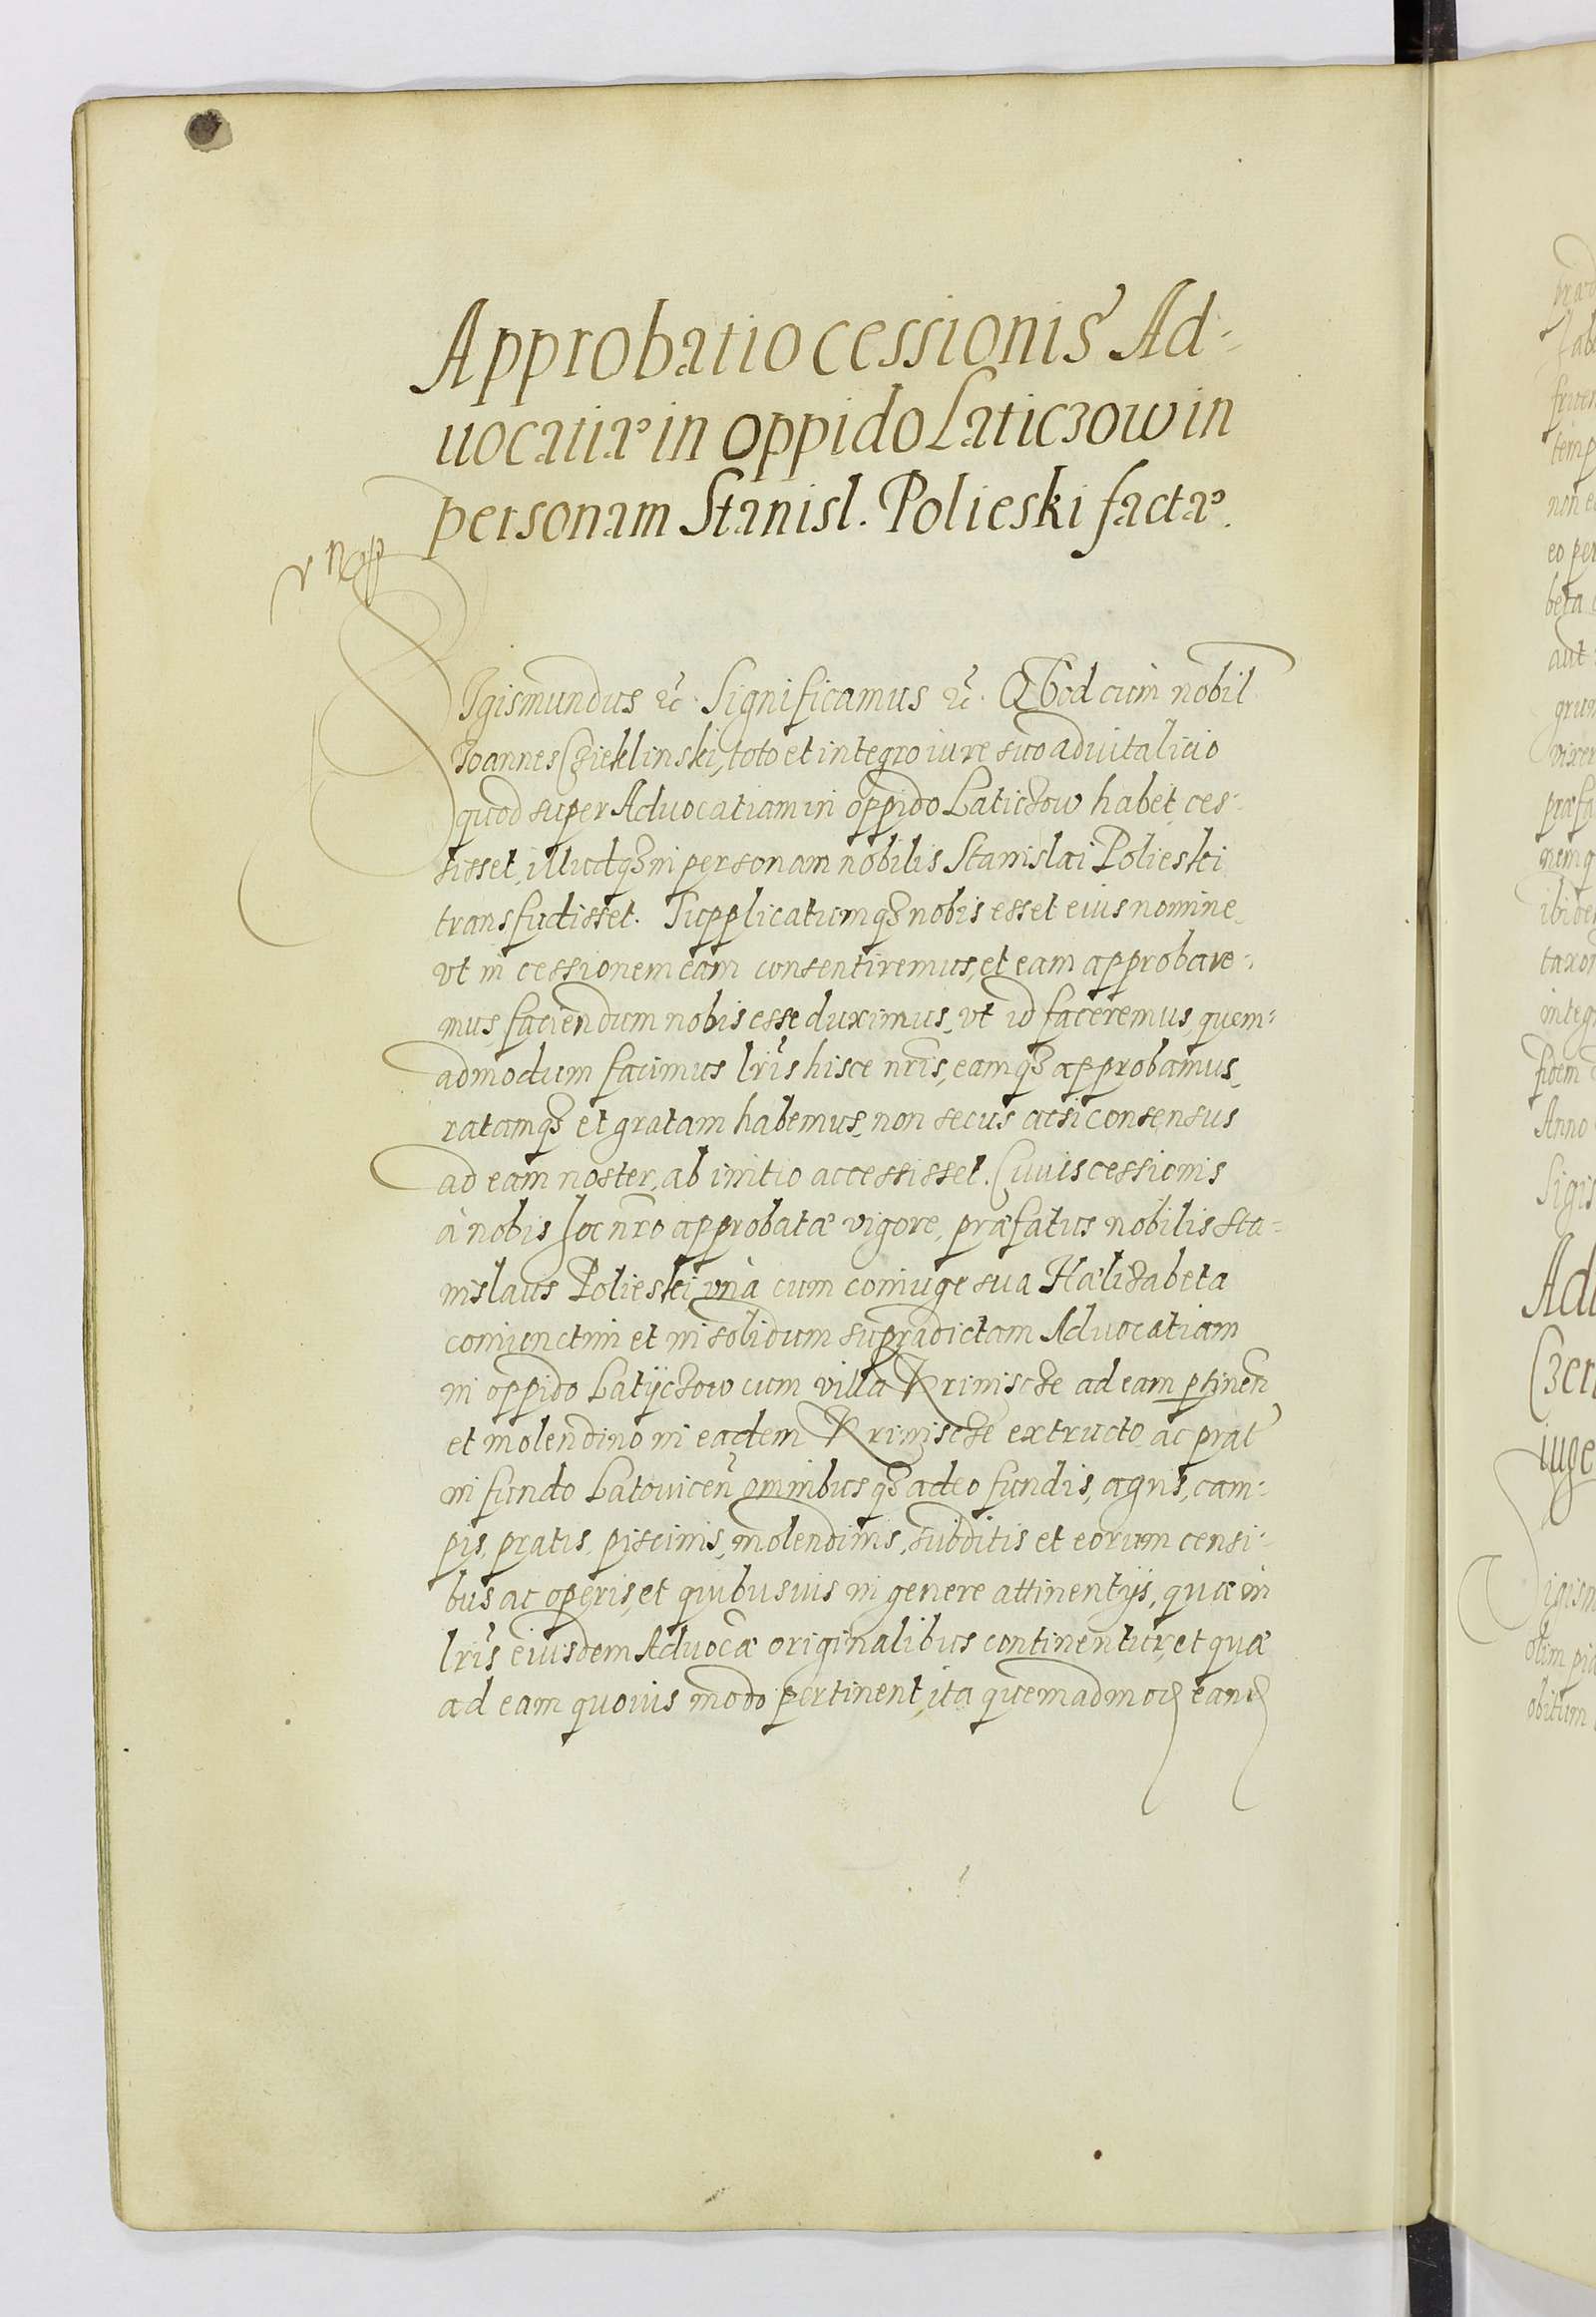 Approbatio cessionis Ad-
uocatiæ in oppido Laticzow in
personam Stanisl. Polieski factæ.
SIgismundus &c. Significamus &c. Quod cum nobil
Joannes Czieklinski, toto et integro iure suo aduitalicio
quod super Aduocatiam in oppido Laticzow habet ces-
sisset, illudq3 in personam nobilis Stanislai Polieski
transfudisset. Supplicatumq3 nobis esset eius nomine
vt in cessionem eam consentiremus, et eam approbare-
mus faciendum nobis esse duximus, vt id faceremus quem-
admodum facimus lris hisce nris, eamq3 approbamus,
ratamq3 et gratam habemus, non secus acsi consensus
ad eam noster, ab initio accessisset. Cuius cessionis
à nobis hoc nro approbatæ vigore, præfatus nobilis Sta-
nislaus Polieski vnà cum coniuge sua Hælizabeta
coniunctim et in solidum supradictam Aduocatiam
in oppido Latijczow cum villa Kriniscze ad eam ptinen
et molendino in eadem Kriniscze extructo ac prat
in fundo Latouicen omnibus q3 adeo fundis, agris, cam-
pis, pratis, piscinis, molendinis, subditis et eorum censi-
bus ac operis, et quibusuis in genere attinentijs, quæ in
lris eiusdem Aduocæ originalibus continentur, et quæ
ad eam quouis modo pertinent, ita quemadmod eand
præd
non e
eo per
aut
grum
præfa
nemq
ibide
integ
fidem
Anno
Sigis
Adu
Czer
iuge
igism
olim pi
obitum